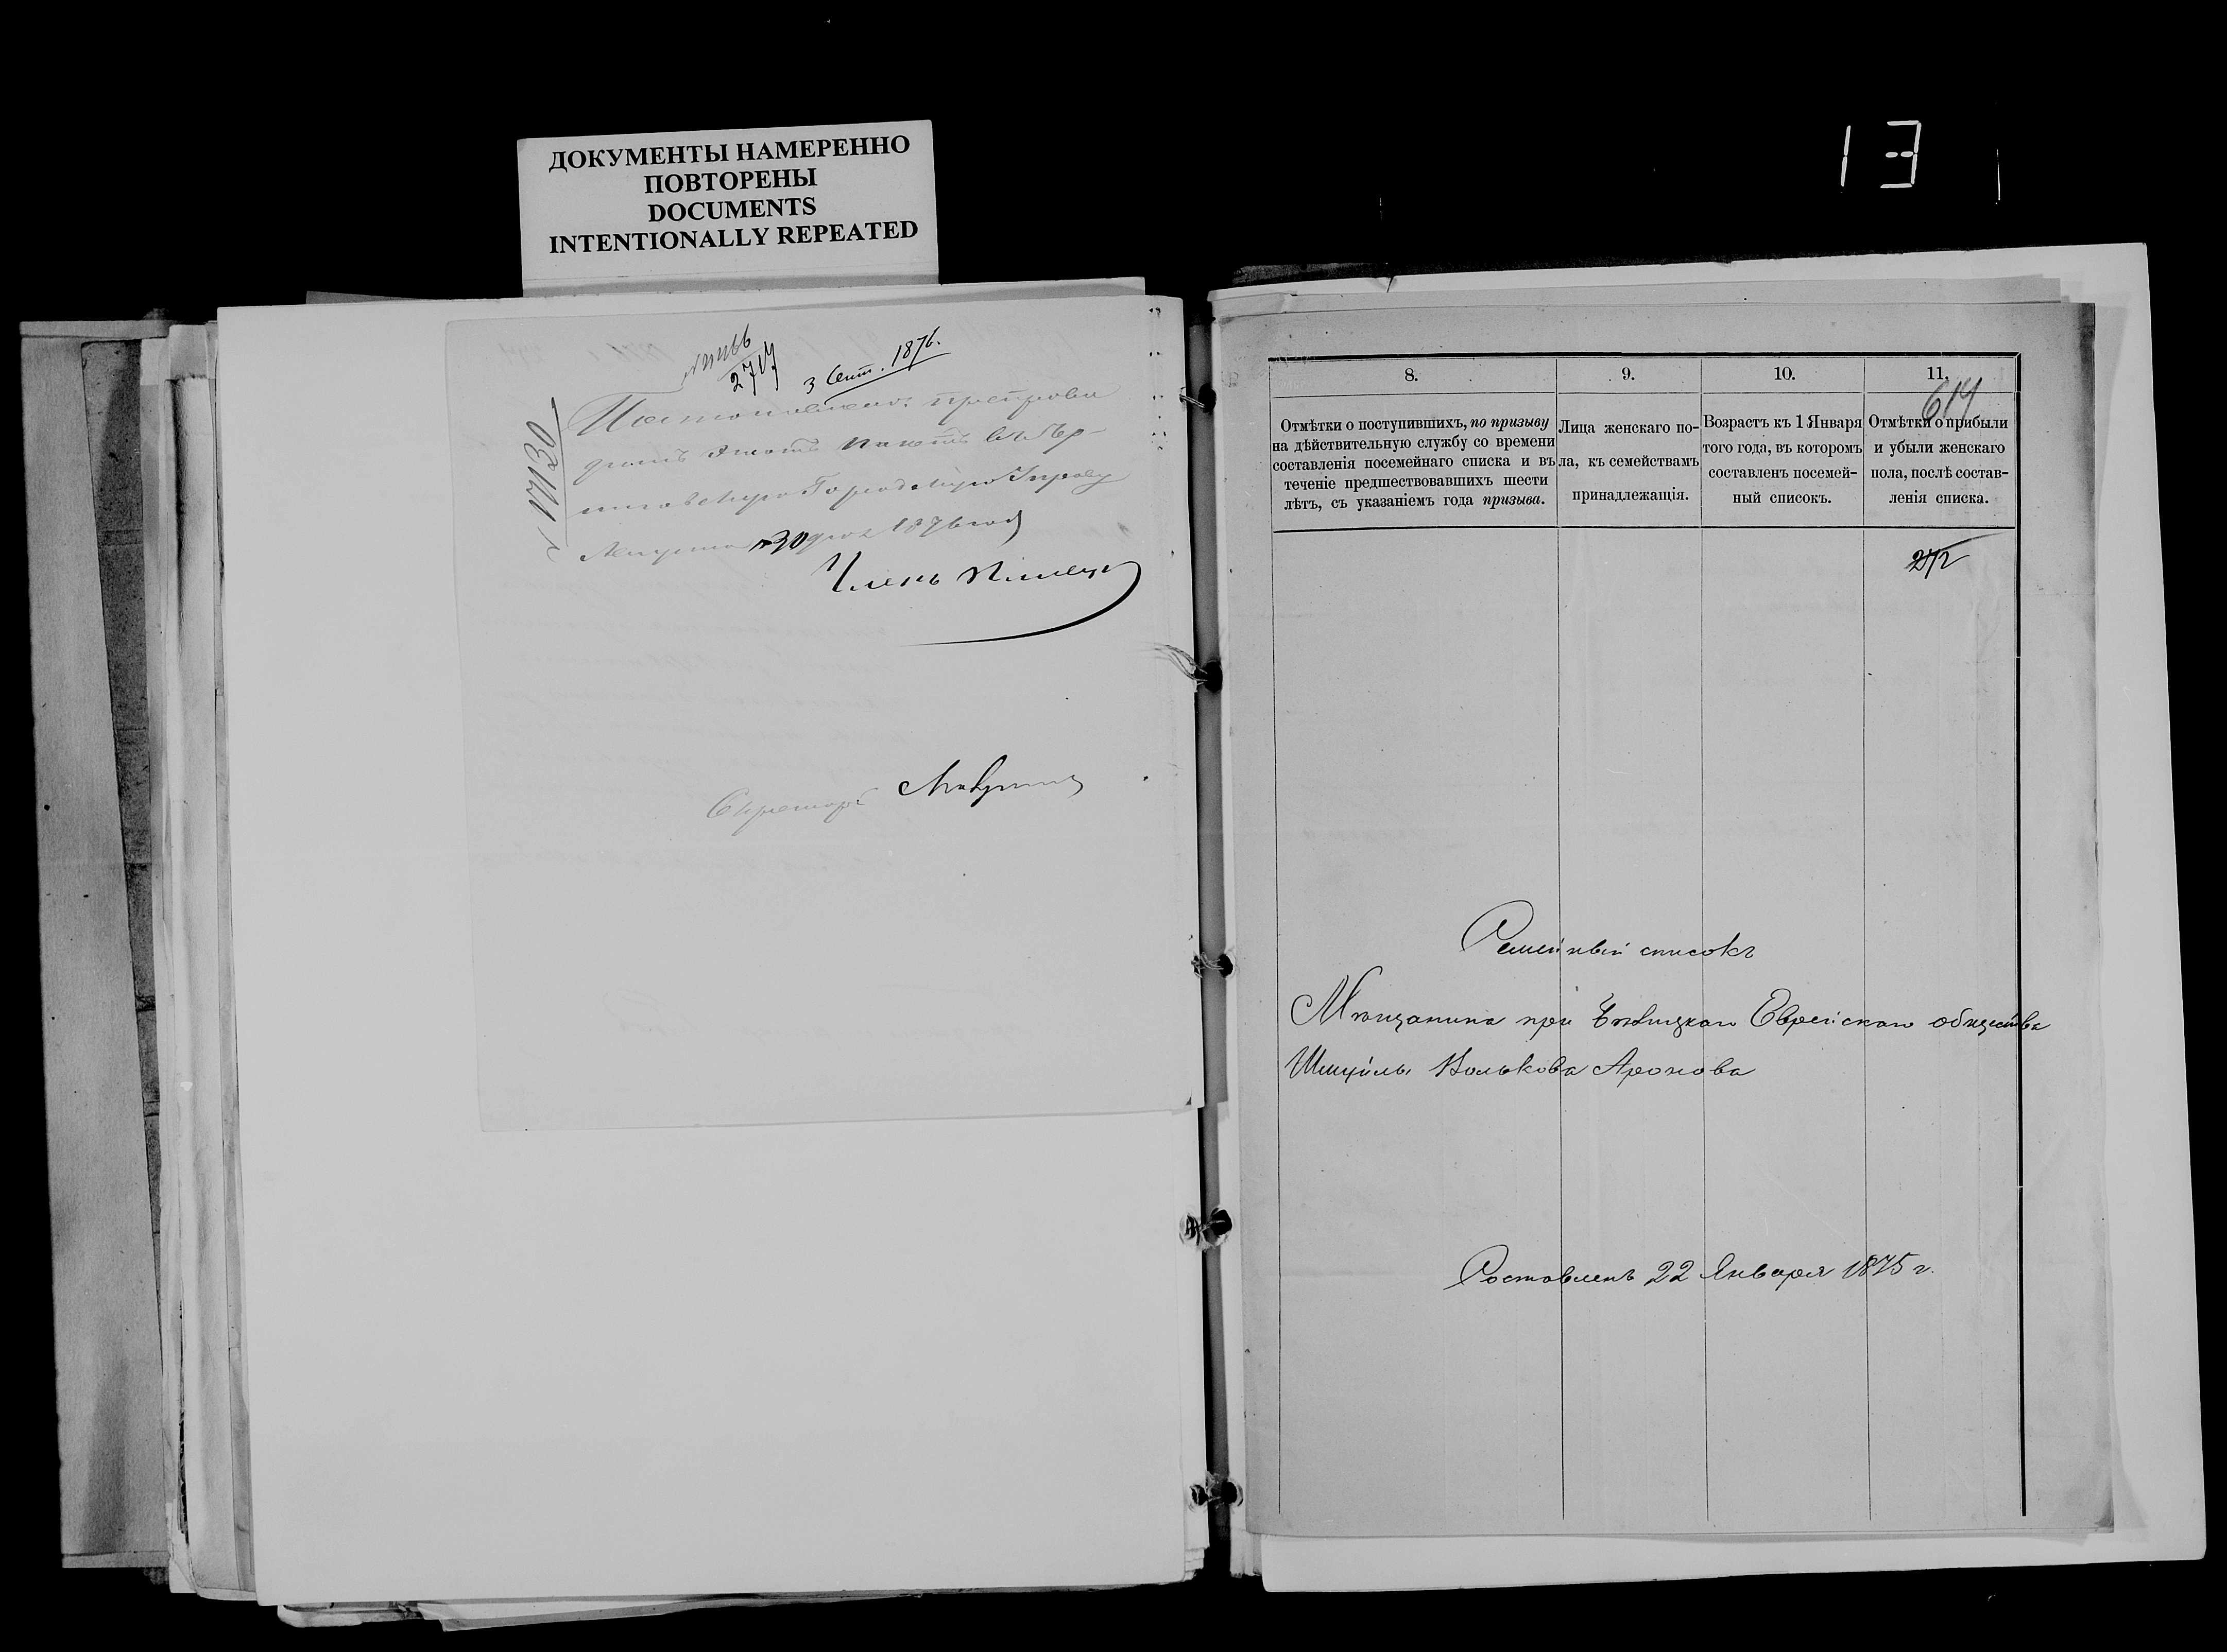 ДОКУМЕНТЫ НАМЕРЕННО
ПОВТОРЕНЫ
DOCUMENTS
INTENTIONALLY REPEATED
13
2717
3 Сент. 1876.
17130
Постановлено: препрово
дить этотъ пакетъ въ Бер-
Городскую Управу
Августа 30 дня 1876 года
Членъ
Секретарь
8.
9.
10.
11.
614
Отмѣтки о поступившихъ, по призыву
на дѣйствительную службу со времени
составленія посемейнаго списка и въ
теченіе предшествовавшихъ шести
лѣтъ, съ указаніемъ года призыва.
Лица женскаго по-
ла, къ семействамъ
принадлежащія.
Возрастъ къ 1 Января
того года, въ которомъ
составленъ посемей-
ный списокъ.
Отмѣтки о прибыли
и убыли женскаго
пола, послѣ состав-
ленія списка.
272
Семейный списокъ
Мѣщанина при Еврейскомъ общества
Шмуйлы Волькова Аронова
Составленъ 22 Января 1875 г.